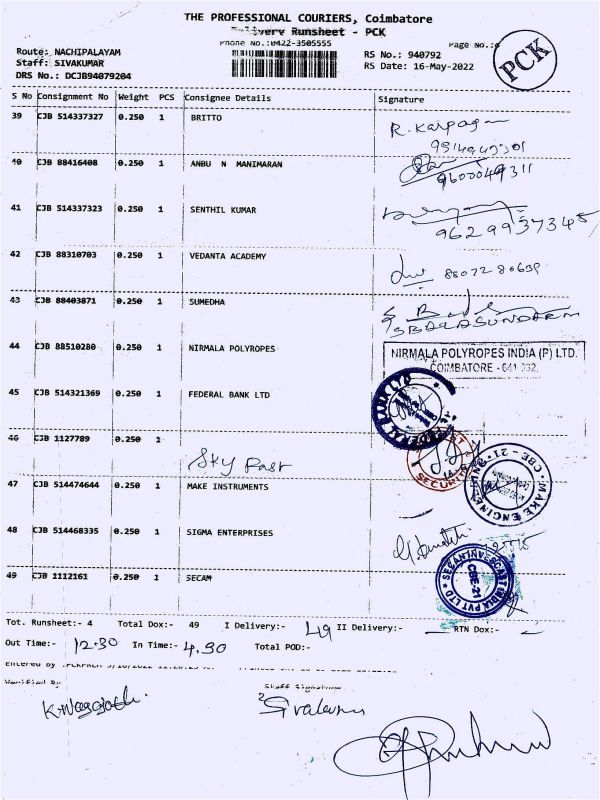 THE PROFESSIONAL COURIERS, Coimbatore
Delivery Runsheet - PCK
Phone No.:0422-3505555
Page No.:
Route: NACHIPALAYAM
Staff: SIVAKUMAR
DRS No.: DCJB94079204
RS No.: 940792
RS Date: 16-May-2022
PCK
S No Consignment No Weight PCS Consignee Details Signature
39 CJB 514337327 0.250 1 BRITTO
R. Karpagam
40 CJB 88416408 0.250 1 ANBU N MANIMARAN
9600049311
41 CJB 514337323 0.250 1 SENTHIL KUMAR
9629937345
42 CJB 88310703 0.250 1 VEDANTA ACADEMY
8807280639
43 CJB 88403871 0.250 1 SUMEDHA
S BALASUNDARM
44 CJB 88510280 0.250 1 NIRMALA POLYROPES
NIRMALA POLYROPES INDIA (P) LTD.
COIMBATORE - 641 032.
45 CJB 514321369 0.250 1 FEDERAL BANK LTD
46 CJB 1127789 0.250 1
Sky Fast
47 CJB 514474644 0.250 1 MAKE INSTRUMENTS
48 CJB 514468335 0.250 1 SIGMA ENTERPRISES
49 CJB 1112161 0.250 1 SECAM
CBE-21
Tot. Runsheet:- 4 Total Dox:- 49 I Delivery:- 49 II Delivery:- RTN Dox:-
Out Time:- 12.30 In Time:- 4.30 Total POD:-
Entered by
Verified By
Staff Signature